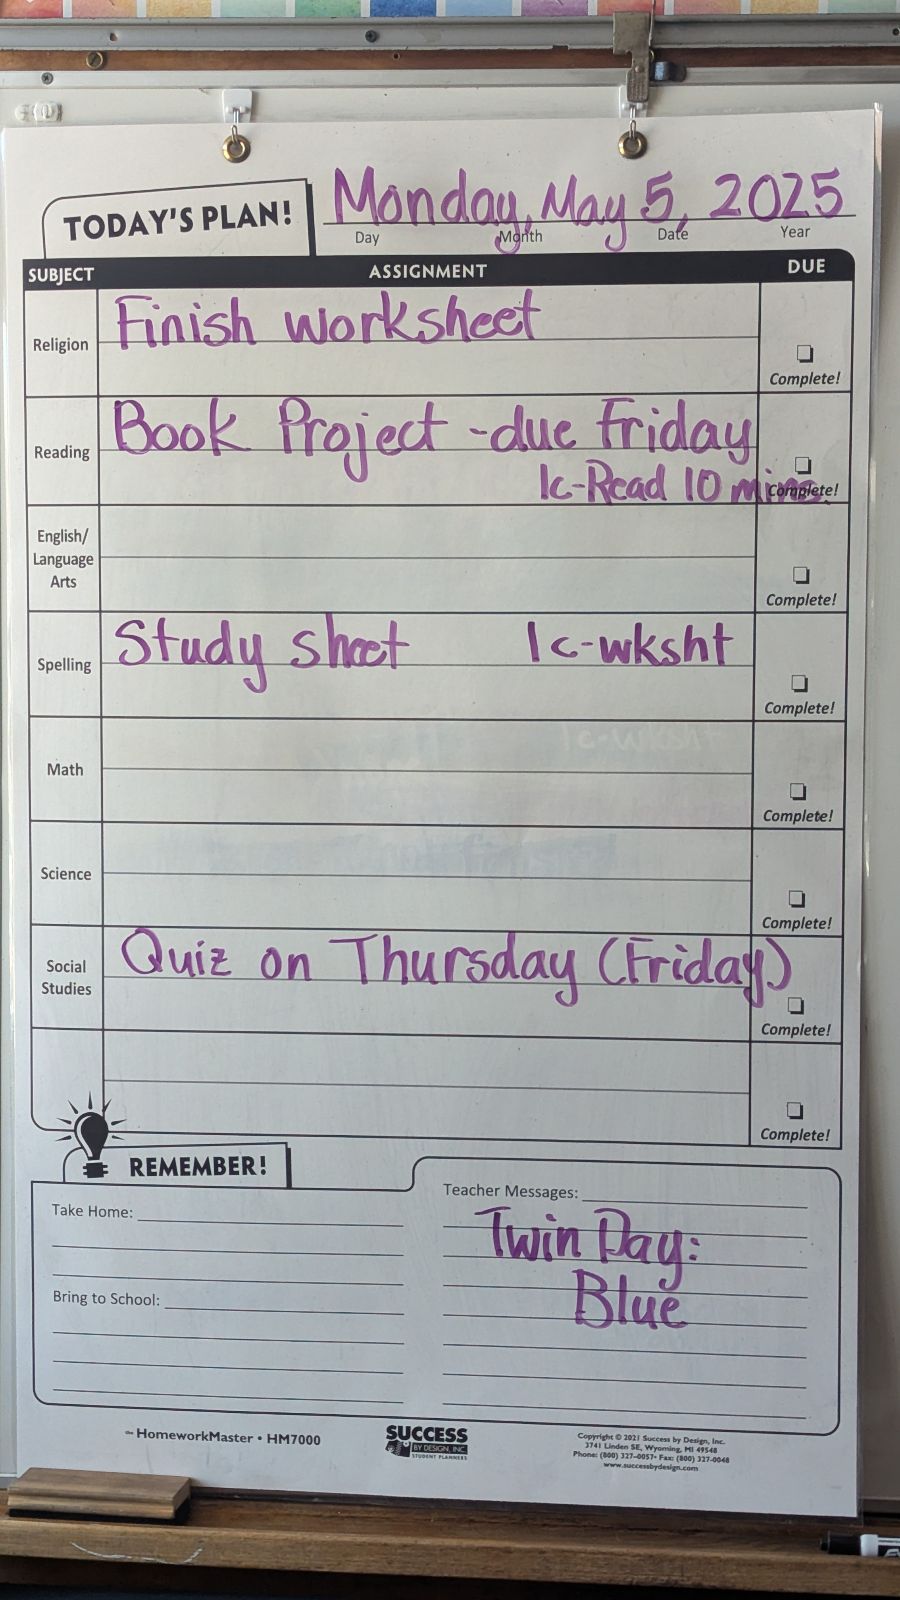 Monday, May 5, 2025
TODAY'S PLAN!
Day Month Date Year
SUBJECT ASSIGNMENT DUE
Finish worksheet
Religion
Complete!
Book Project - due Friday
Reading
1c-Read 10 mins.
Complete!
English/
Language
Arts
Complete!
Study sheet 1c-wksht
Spelling
Complete!
1c-wksht
Math
Complete!
Science
Complete!
Quiz on Thursday (Friday)
Social
Studies
Complete!
Complete!
REMEMBER!
Take Home:
Bring to School:
Teacher Messages:
Twin Day:
Blue
HomeworkMaster • HM7000
SUCCESS
BY DESIGN, INC
STUDENT PLANNERS
Copyright © 2021 Success by Design, Inc.
3741 Linden SE, Wyoming, MI 49548
Phone: (800) 327-0057• Fax: (800) 327-0048
www.successbydesign.com